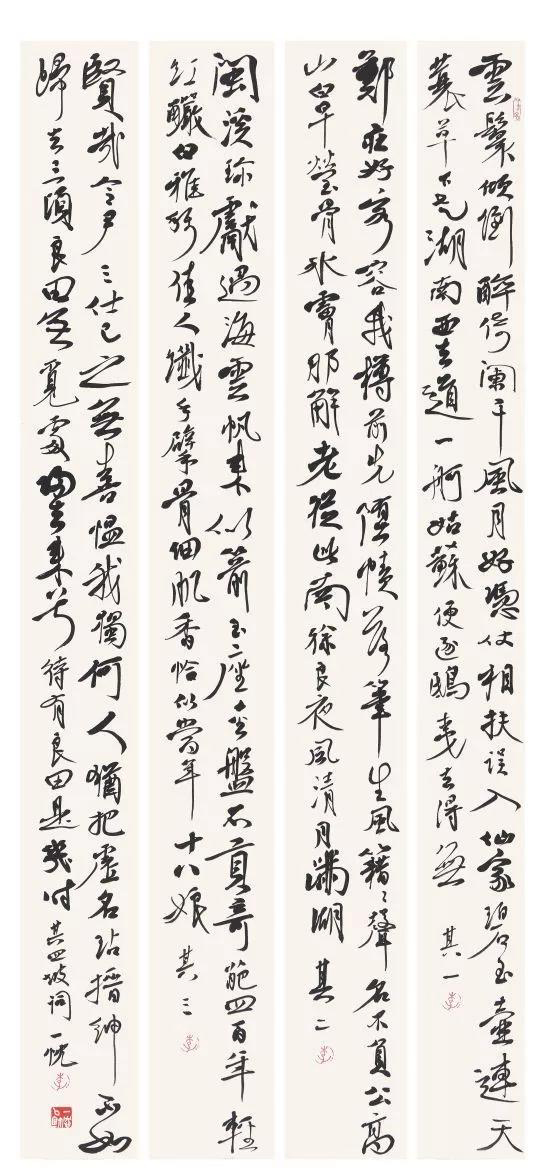 雲鬟傾倒醉倚闌干風月好憑仗相扶誤入仙家碧玉壺連天
衰草下走湖南西去道一舸姑蘇便逐鴟夷去得無 其一
鄭莊好客容我樽前先墮幘落筆生風籍籍聲名不負公高
山白早瑩骨冰膚那解老從此南徐良夜風清月滿湖 其二
閩溪珍獻過海雲帆來似箭玉座金盤不貢奇葩四百年輕
紅釀白雅稱佳人纖手擘骨細肌香恰似當年十八娘 其三
賢哉令尹三仕已之無喜慍我獨何人猶把虛名玷搢紳不如
歸去二頃良田無覓處歸去來兮待有良田是幾時 其四坡詞